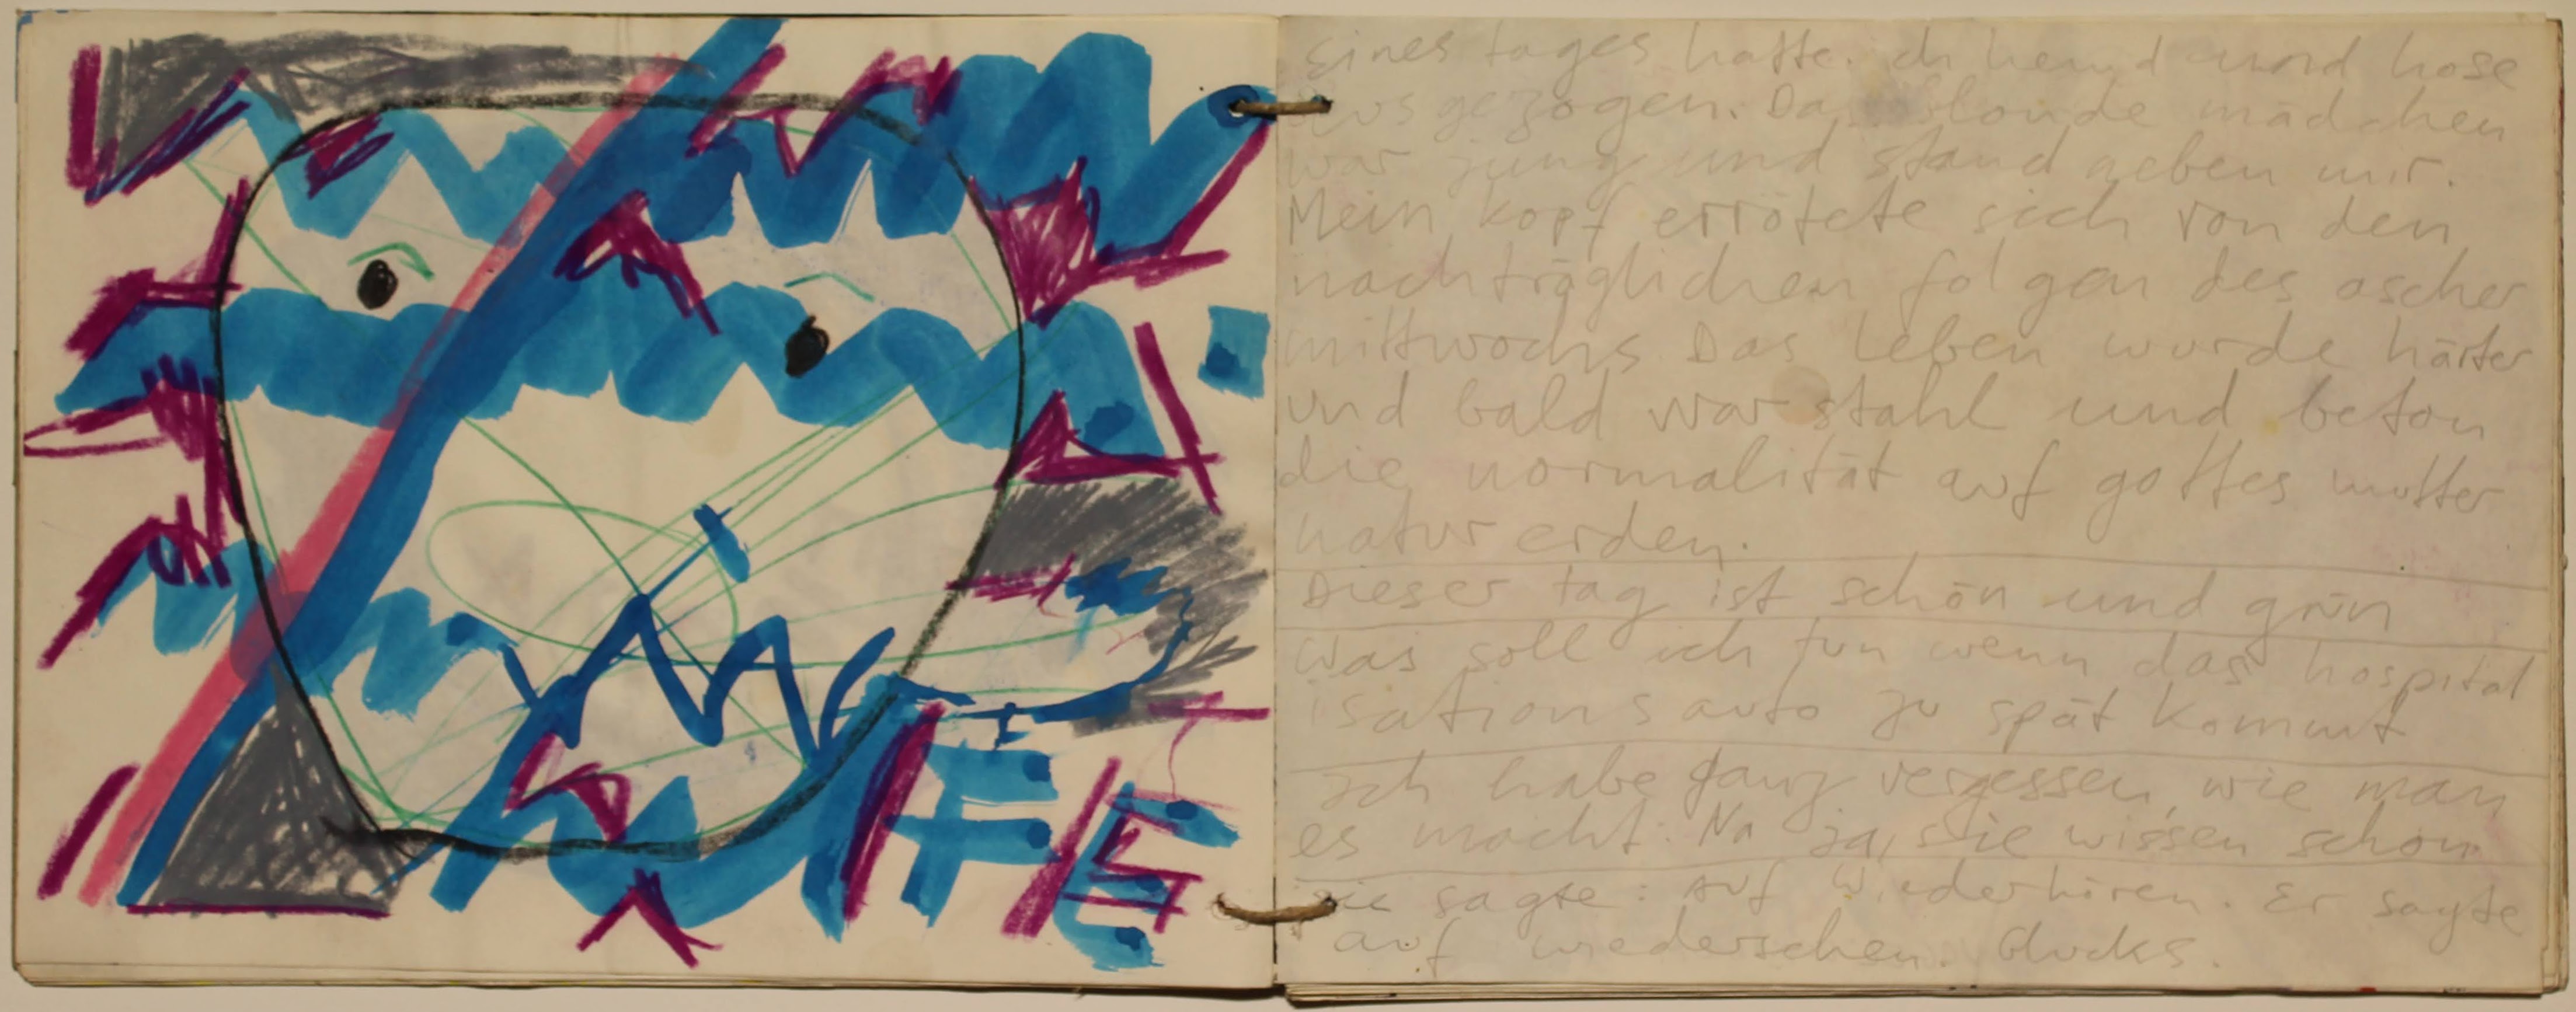 eines tages hatte ich hemd und hose
ausgezogen. Das blonde mädchen
war jung und stand neben mir.
Mein kopf errötete sich von den
nachträglichen folgen des ascher
mittwochs Das leben wurde härter
und bald war stahl und beton
die normalität auf gottes mutter
natur erden.
Dieser tag ist schön und grün
was soll ich tun wenn das hospital
isations auto zu spät kommt
ich habe ganz vergessen, wie man
es macht. Na ja, sie wissen schon
sie sagte: Auf Wiederhören. Er sagte
auf wiedersehen. Glucks.